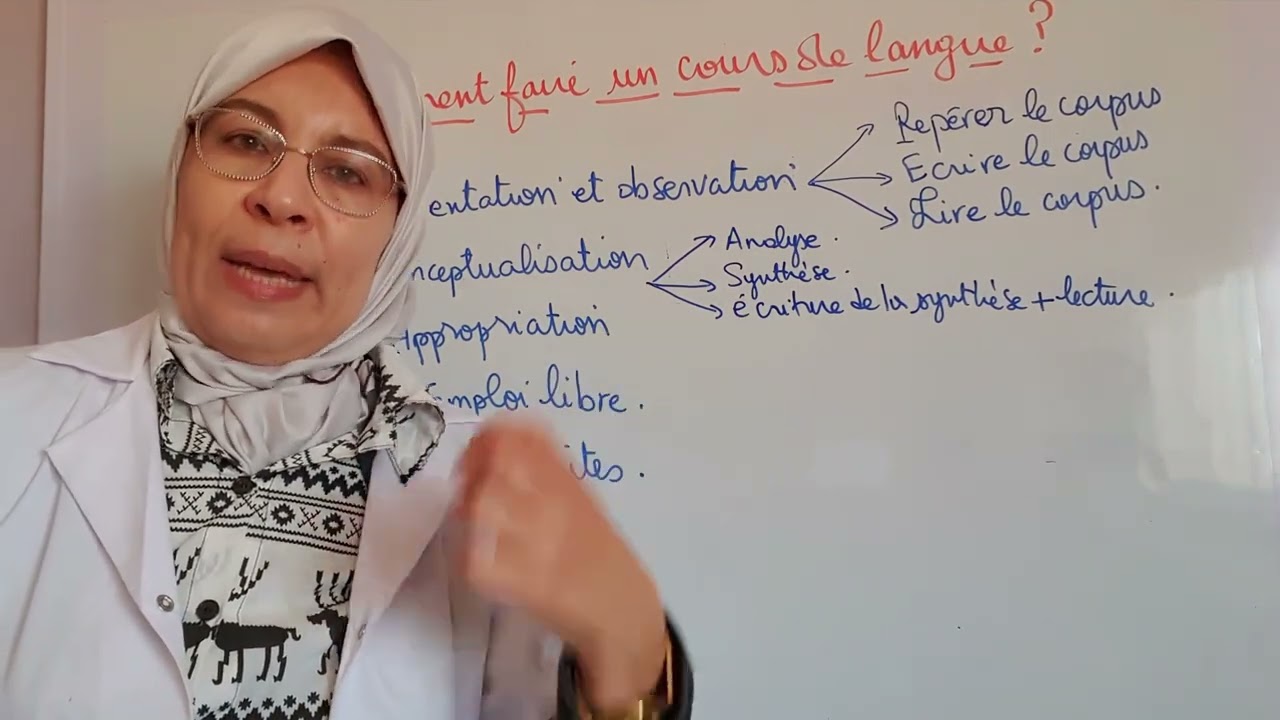 ent faire un cours de langue ?
entation et observation
Repérer le corpus
Ecrire le corpus
Lire le corpus.
nceptualisation
Analyse.
Synthèse.
écriture de la synthèse + lecture.
Appropriation
Emploi libre.
ites.